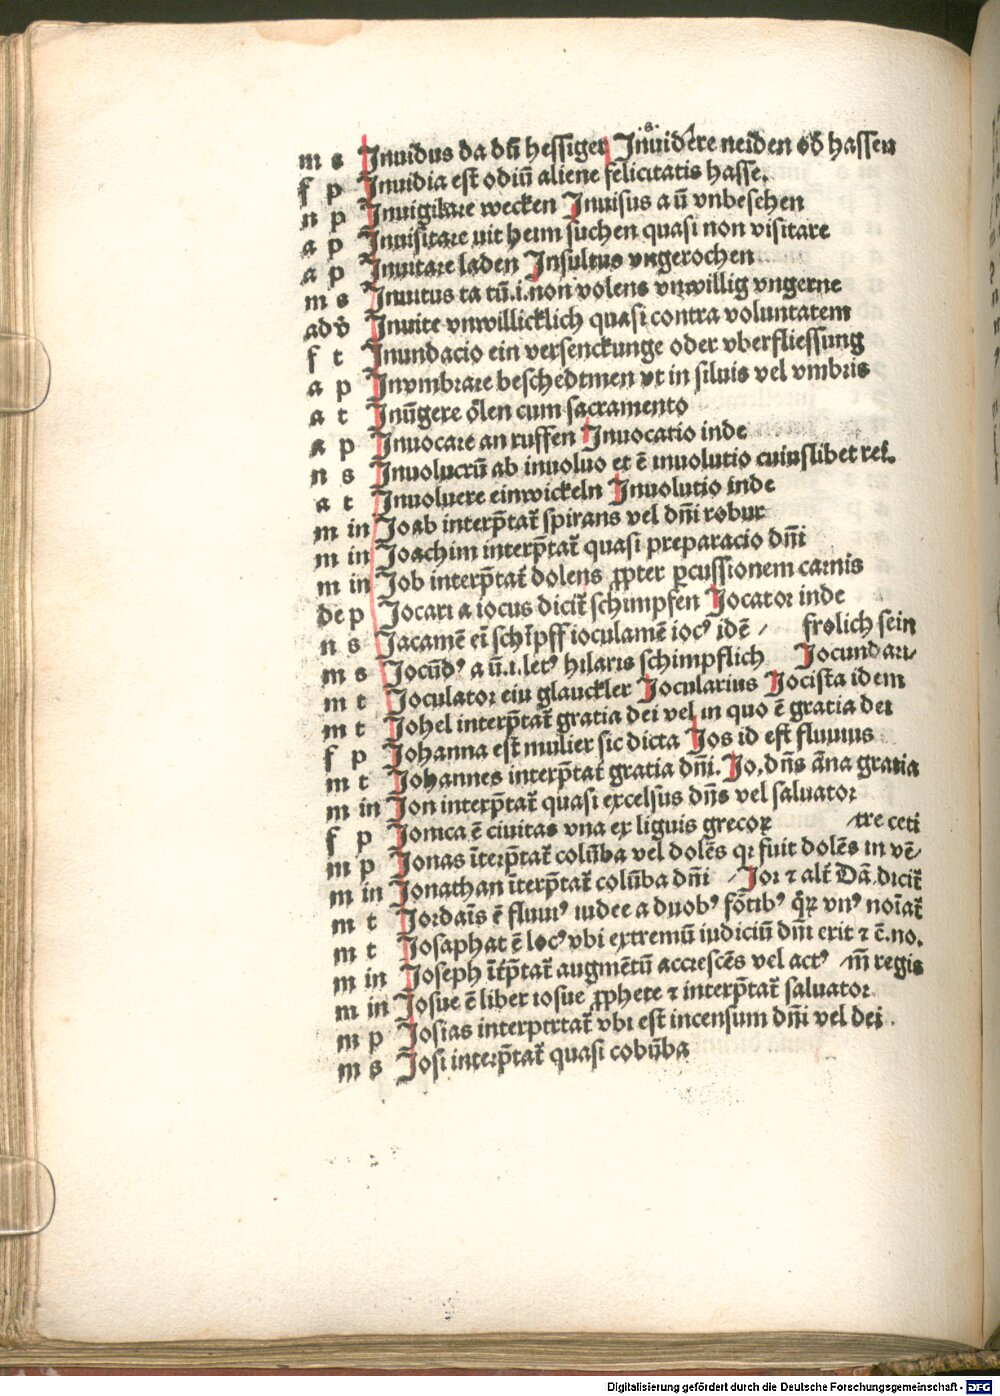 m s Jnuidus da dū hessiger Jnuidere neiden od hassen
f p Jnuidia est odiū aliene felicitatis hasse.
n p Jnuigilare wecken Jnuisus a ū vnbesehen
a p Jnuisitare nit heim suchen quasi non visitare
a p Jnuitare laden Jnsultus vngerochen
m s Jnuitus ta tū.i.non volens vnwillig vngerne
adv Jnuite vnwillicklich quasi contra voluntatem
f t Jnundacio ein versenckunge oder vberfliessung
a p Jnvmbrare beschedtmen vt in siluis vel vmbris
a t Jnūgere ölen cum sacramento
a p Jnuocare an ruffen Jnuocatio inde
n s Jnuolucrū ab inuoluo et ē inuolutio cuiuslibet rei.
a t Jnuoluere einwickeln Jnuolutio inde
m in Joab interp̄tat̄ spirans vel dn̄i robur
m in Joachim interp̄tat̄ quasi preparacio dn̄i
m in Job interp̄tat̄ dolens ꝓpter ꝑcussionem carnis
de p Jocari a iocus dicit̄ schimpfen Jocator inde
n s Jacamē ei schīpff ioculamē iocꝰ idē / frolich sein
m s Jocūdꝰ a ū.i.letꝰ hilaris schimpflich Jocundari/
m t Joculator ein glauckler Jocularius Jocista idem
m t Johel interp̄tat̄ gratia dei vel in quo ē gratia dei
f p Johanna est mulier sic dicta Jos id est fluuius
m t Johannes interp̄tat̄ gratia dn̄i. Jo.dn̄s āna gratia
m in Jon interp̄tat̄ quasi excelsus dn̄s vel saluator
f p Jonica ē ciuitas vna ex liguis grecoꝝ /tre ceti
m p Jonas īterp̄tat̄ colūba vel dolēs qꝛ fuit dolēs in vē/
m in Jonathan īterp̄tat̄ colūba dn̄i / Jor ⁊ alt̄ Dā.dicit̄
m t Jordaīs ē fluuiꝰ iudee a duobꝰ fōtibꝰ q̄ꝝ vnꝰ noīat̄
m t Josaphat ē locꝰ vbi extremū iudiciū dn̄i erit ⁊ ē.no.
m in Joseph īt̄p̄tat̄ augmētū accrescēs vel actꝰ /m̄ regis
m in Josue ē liber iosue ꝓphete ⁊ interp̄tat̄ saluator
m p Josias interptrtat̄ vbi est incensum dn̄i vel dei.
m s Josi interp̄tat̄ quasi cobūba
Digitalisierung gefördert durch die Deutsche Forschungsgemeinschaft - DFG